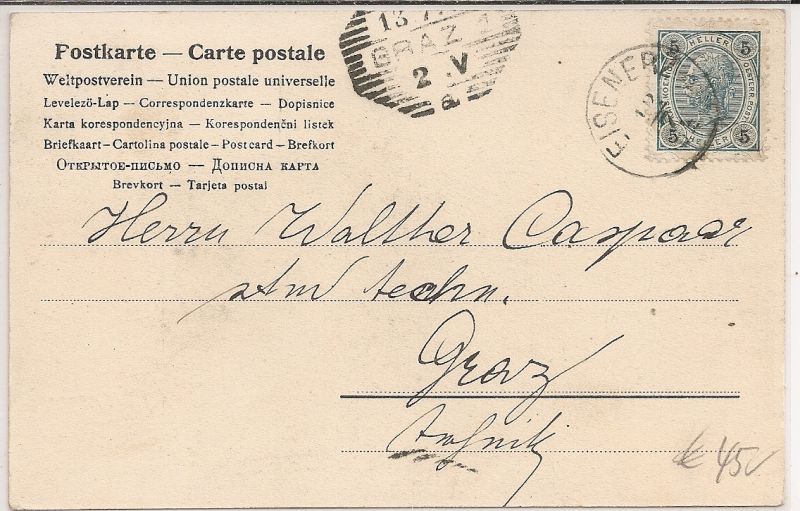 Postkarte — Carte postale
Weltpostverein — Union postale universelle
Levelező-Lap — Correspondenzkarte — Dopisnice
Karta korespondencyjna — Korespondenční lístek
Briefkaart - Cartolina postale - Postcard - Brefkort
Открытое-письмо — Дописна карта
Brevkort — Tarjeta postal
13
GRAZ 1
2 . V
a
EISENERZ
5 HELLER 5
5 HELLER 5
Herrn Walther Caspaar
techn.
Graz
45